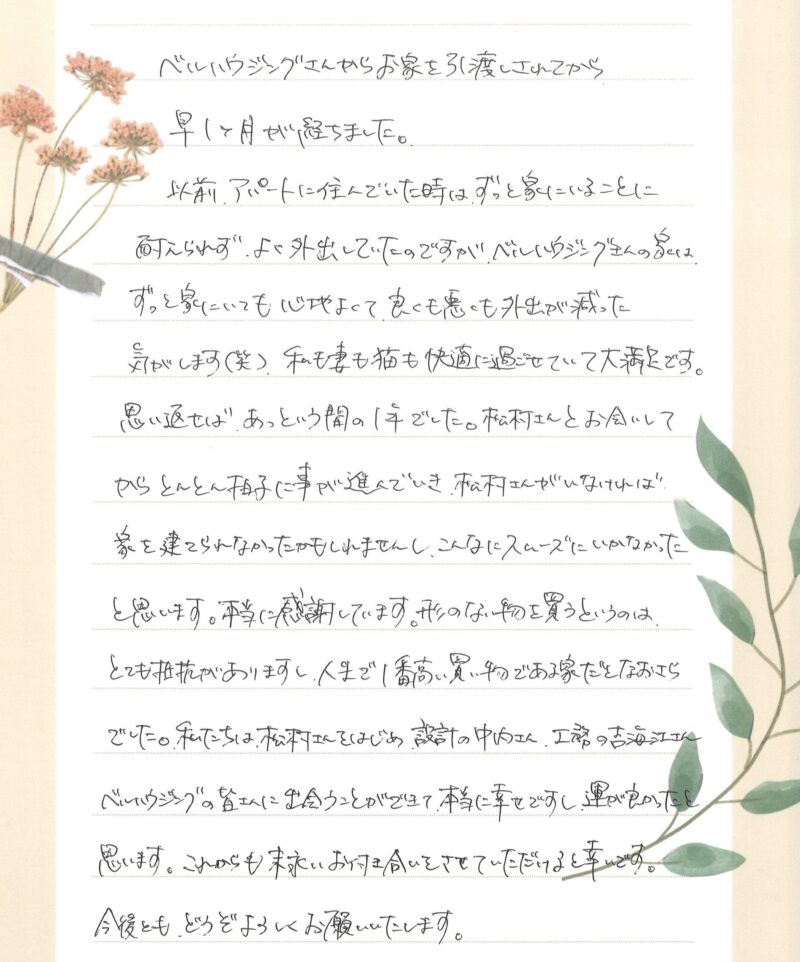 ベルハウジングさんからお家を引渡しされてから
早1ヶ月が経ちました。
以前、アパートに住んでいた時は、ずっと家にいることに
耐えられず、よく外出していたのですが、ベルハウジングさんの家は、
ずっと家にいても心地よくて、良くも悪くも外出が減った
気がします(笑)、私も妻も猫も快適に過ごせていて大満足です。
思い返せば、あっという間の1年でした。松村さんとお会いして
からとんとん拍子に事が進んでいき、松村さんがいなければ
家を建てられなかったかもしれませんし、こんなにスムーズにいかなかった
と思います。本当に感謝しています。形のない物を買うというのは、
とても抵抗がありますし、人生で1番高い買い物である家だとなおさら
でした。私たちは、松村さんをはじめ、設計の中内さん、工務の吉海江さん
ベルハウジングの皆さんに出会うことができて、本当に幸せですし、運が良かったと
思います。これからも末永いお付き合いをさせていただけると幸いです。
今後とも、どうぞよろしくお願いいたします。